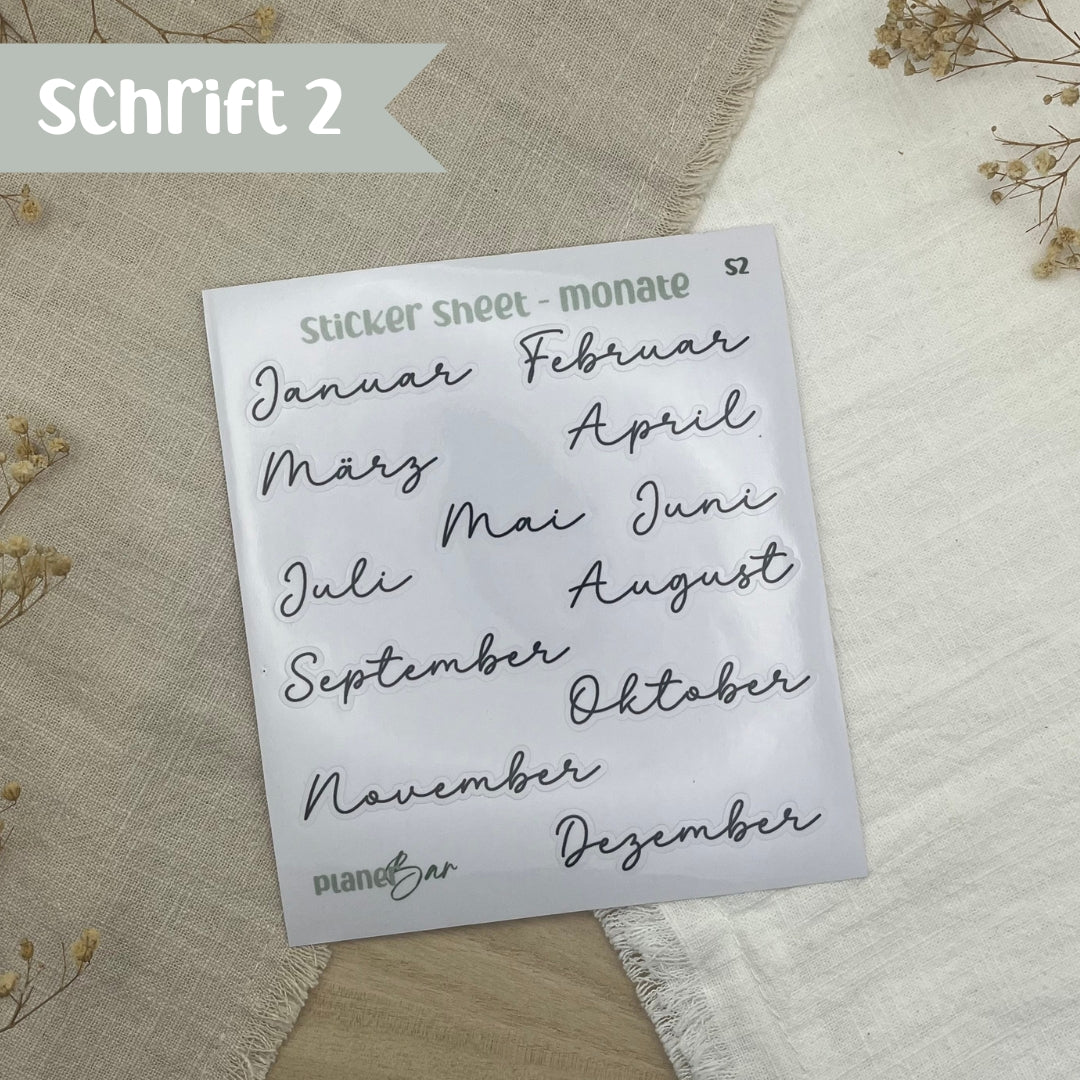 Schrift 2
Sticker Sheet - Monate S2
Januar Februar
März April
Mai Juni
Juli August
September
Oktober
November
Dezember
planerBar